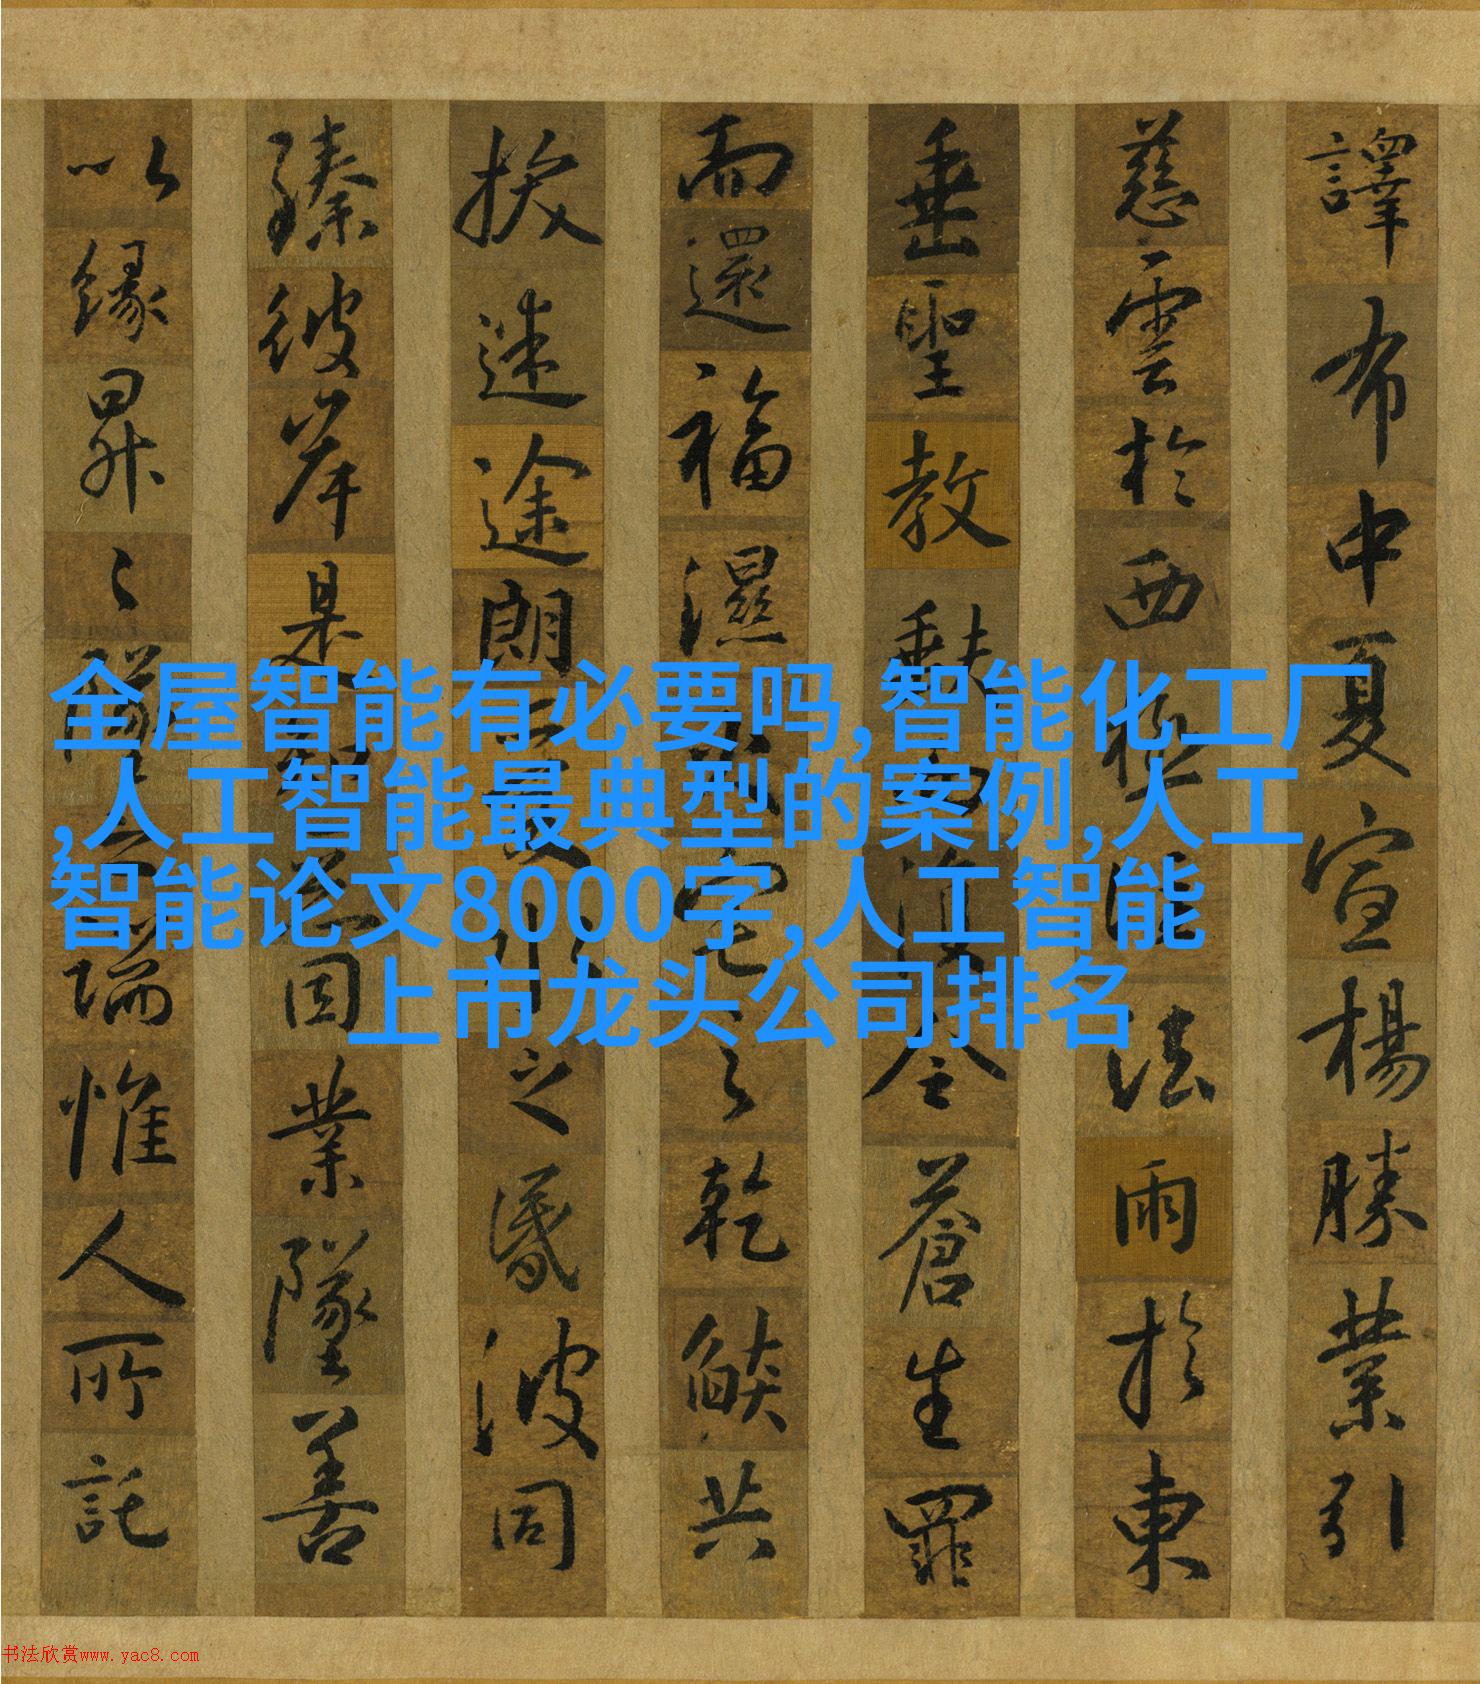 譯布中夏宣楊勝業引
慈雲於西極注法雨於東
垂聖教缺而復全蒼生罪
而還福濕火宅之乾燄共
拔迷途朗愛水之昏波同
臻彼岸是知惡因業墜善
以緣昇々墜之端惟人所託
全屋智能有必要吗,智能化工厂
,人工智能最典型的案例,人工
智能论文8000字,人工智能
上市龙头公司排名
书法欣赏www.yac8.com